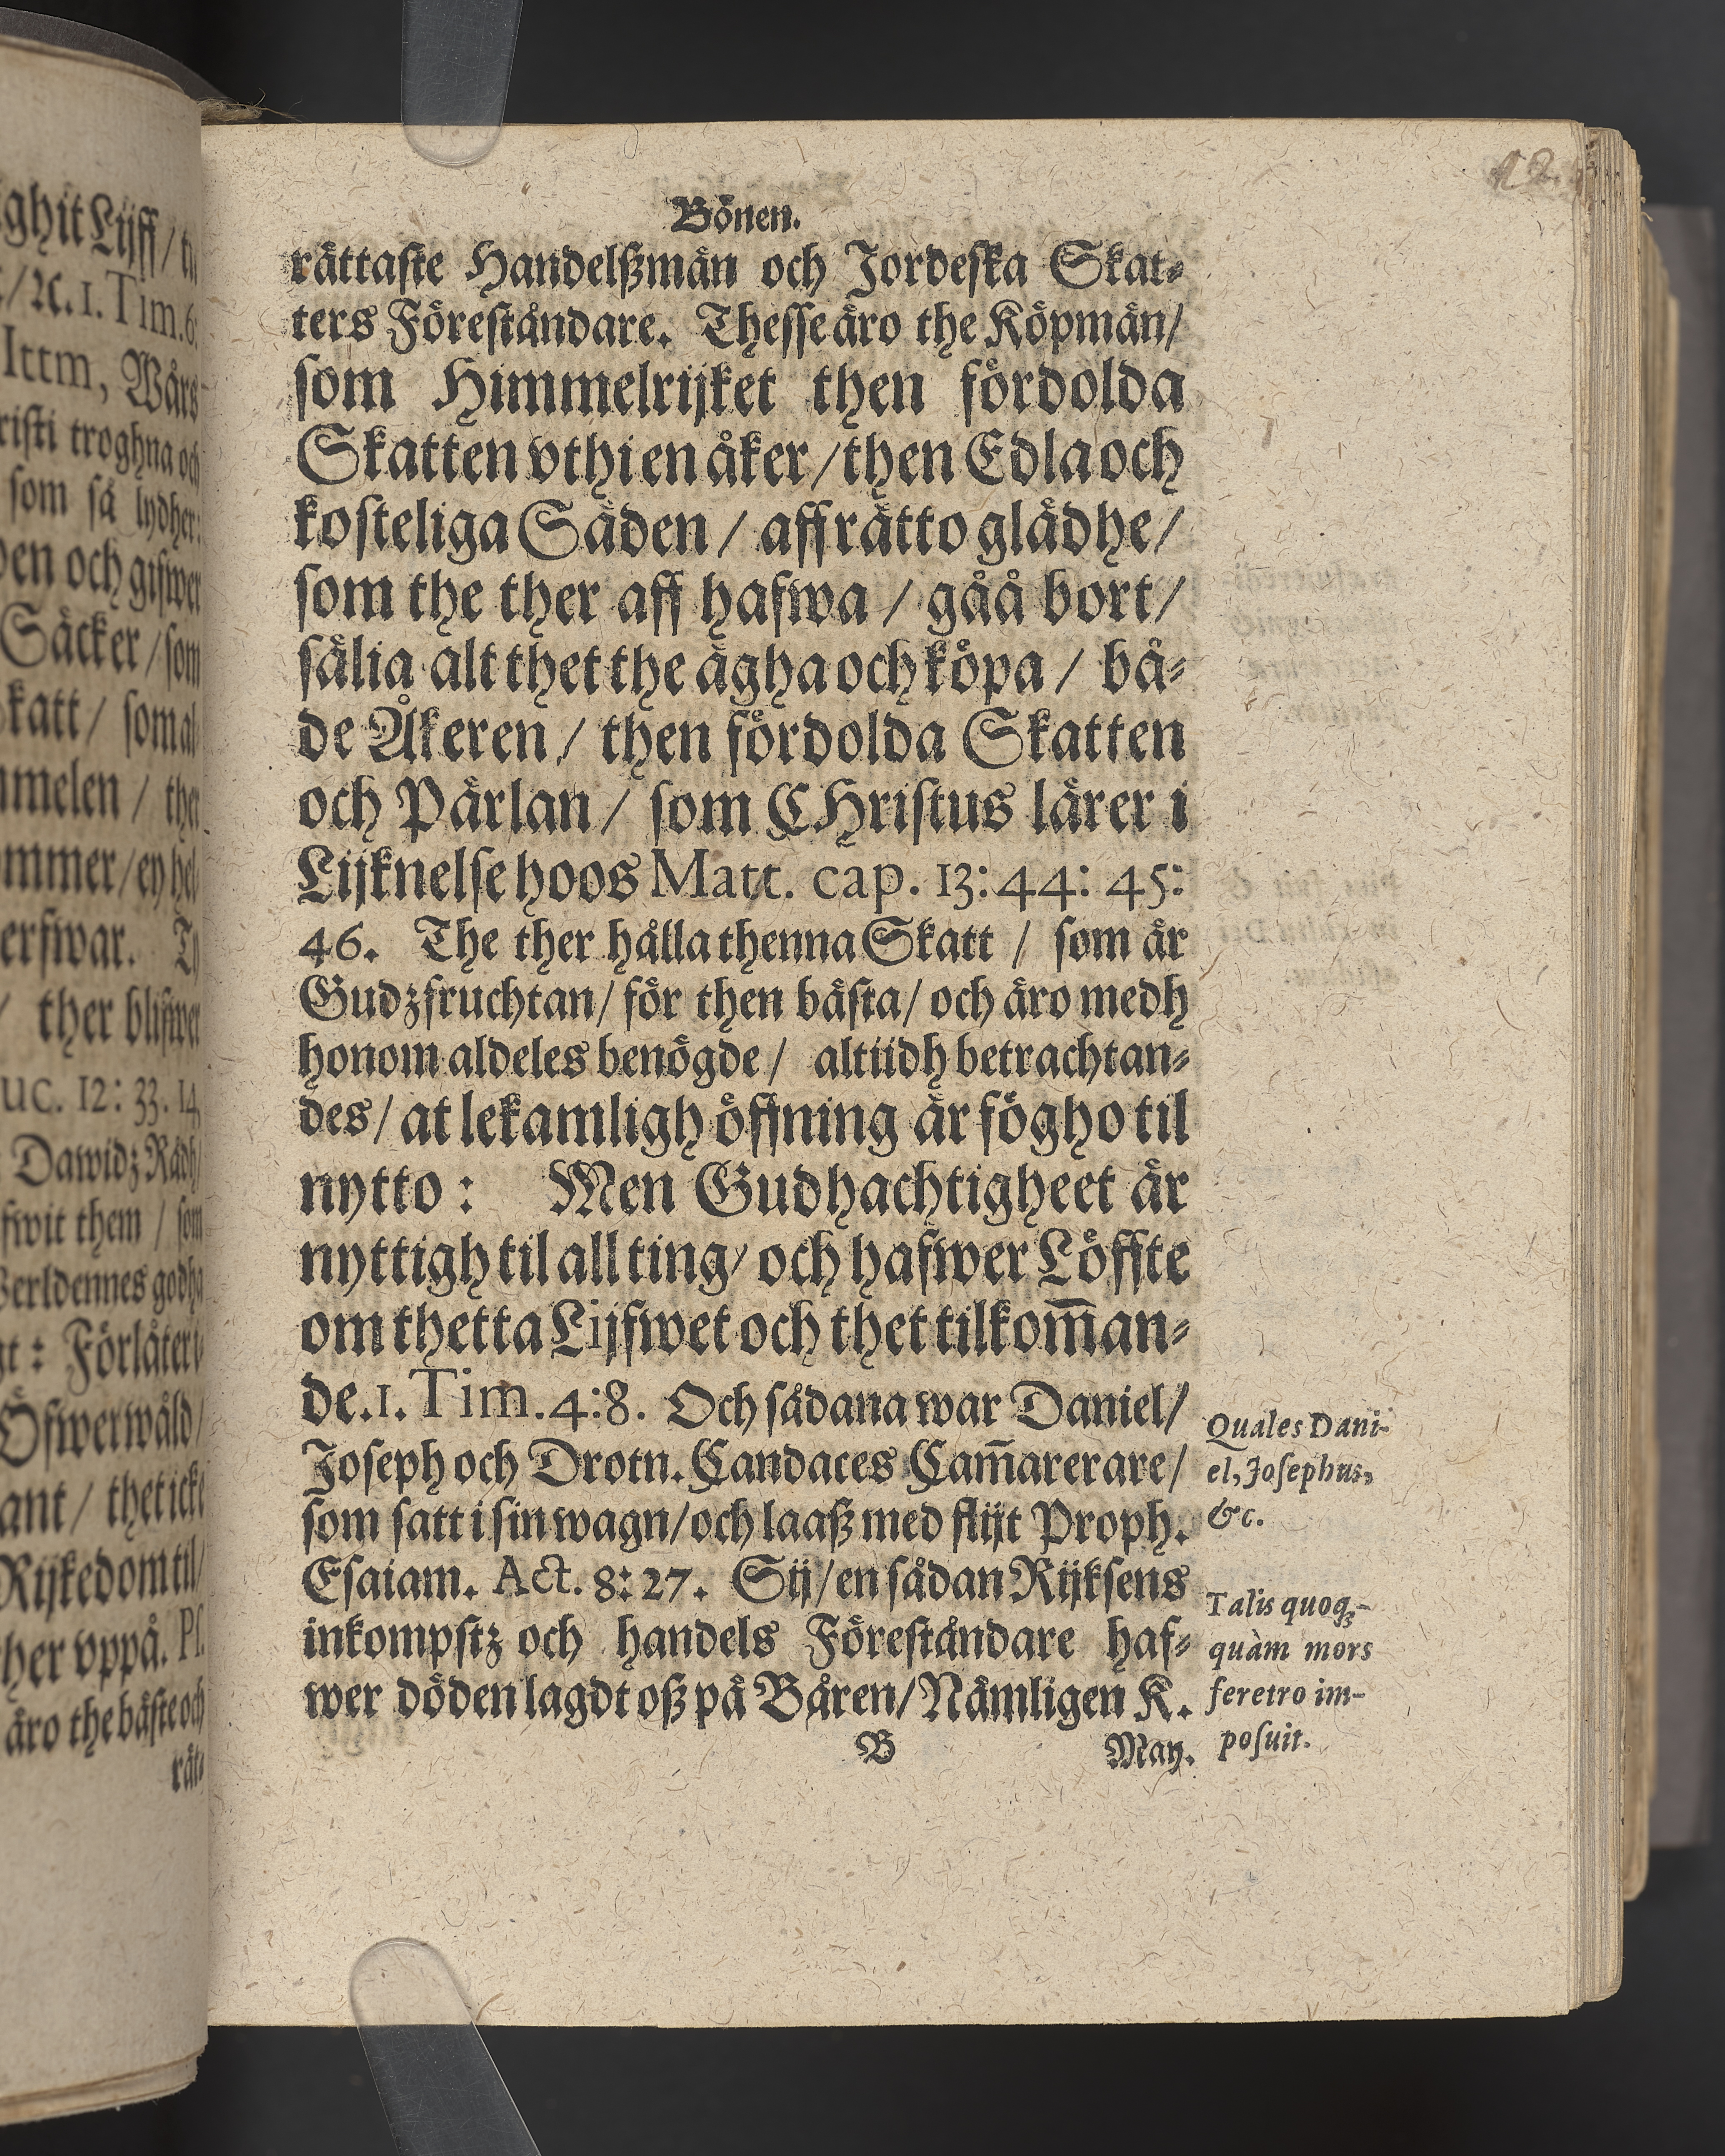 ghit Lijff /
1. Tim. 6:
Ittm, Wårs
risti troghna och
som så lydher:
den och gifwer
Säcker / som
katt / som al
melen / ther
ommer / ey hel
erfwar.
/ ther blifwer
uc. 12: 33. 14
Dawidz Rådh /
fwit them / som
Werldennes godha
gt: Förlåter
Öfwerwåld /
ant / thet icke
Rijkedom til /
her vppå. Ps.
äro the bäste och
rät⸗
12.
Bönen.
rättaste Handelßmän och Jordeska Skat⸗
ters Föreståndare. Thesse äro the Köpmän/
som Himmelrijket then fördolda
Skatten vthi en åker / then Edla och
kosteliga Säden / aff rätto glädhe /
som the ther aff hafwa / gåå bort /
sälia alt thet the ägha och köpa / bå⸗
de Åkeren / then fördolda Skatten
och Pärlan / som CHristus lärer i
Lijknelse hoos Matt. cap. 13: 44: 45:
46. The ther hålla thenna Skatt / som är
Gudzfruchtan / för then bästa / och äro medh
honom aldeles benögde / altiidh betrachtan⸗
des / at lekamligh öffning är fögho til
nytto : Men Gudhachtigheet är
nyttigh til all ting / och hafwer Löffte
om thetta Lijfwet och thet tilkom̄an⸗
de. 1. Tim. 4:8. Och sådana war Daniel /
Joseph och Drotn. Candaces Cam̄arerare /
som satt i sin wagn / och laaß med flijt Proph.
Esaiam. Act. 8: 27. Sij / en sådan Rijksens
inkompstz och handels Föreståndare haf⸗
wer döden lagdt oß på Båren / Nämligen K.
B May.
Quales Dani-
el, Josephus,
&c.
Talis quoq;-
quàm mors
feretro im-
posuit.